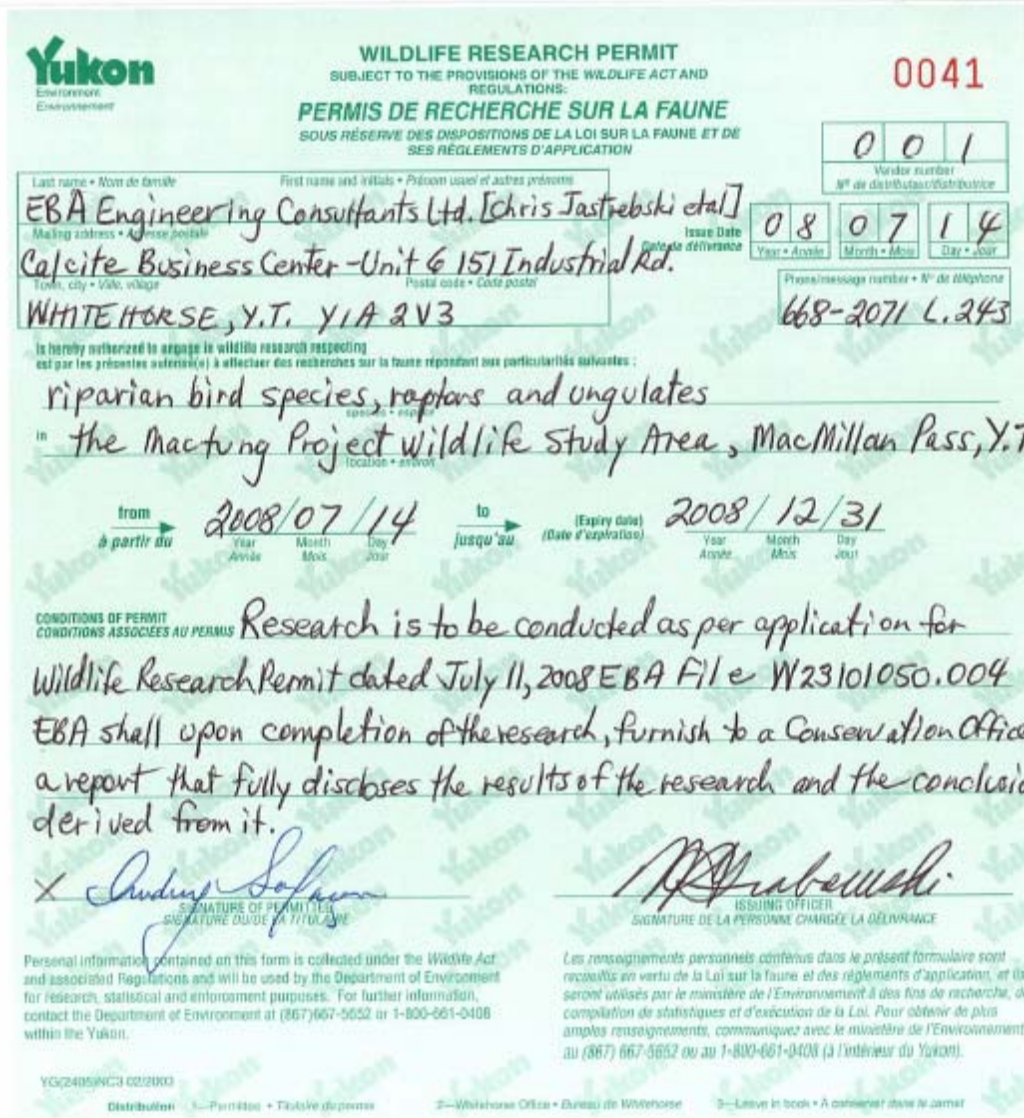 Yukon
Environment
Environnement
WILDLIFE RESEARCH PERMIT
SUBJECT TO THE PROVISIONS OF THE WILDLIFE ACT AND
REGULATIONS:
PERMIS DE RECHERCHE SUR LA FAUNE
SOUS RÉSERVE DES DISPOSITIONS DE LA LOI SUR LA FAUNE ET DE
SES RÈGLEMENTS D'APPLICATION
0041
0 0 1
Vendor number
Nº de distributeur/distributrice
Last name • Nom de famille First name and initials • Prénom usuel et autres prénoms
EBA Engineering Consultants Ltd. [Chris Jastrebski etal]
Mailing address • Adresse postale
Issue Date
Date de délivrance
0 8 0 7 1 4
Year • Année Month • Mois Day • Jour
Calcite Business Center - Unit 6 151 Industrial Rd.
Town, city • Ville, village Postal code • Code postal
Phone/message number • Nº de téléphone
WHITEHORSE, Y.T. Y1A 2V3
668-2071 L.243
is hereby authorized to engage in wildlife research respecting
est par les présentes autorisé(e) à effectuer des recherches sur la faune répondant aux particularités suivantes :
riparian bird species, raptors and ungulates
species • espèce
in the Mactung Project Wildlife Study Area, MacMillan Pass, Y.T
location • endroit
from 2008/07/14 to (Expiry date) 2008/12/31
à partir du Year Month Day jusqu'au (Date d'expiration) Year Month Day
Année Mois Jour Année Mois Jour
CONDITIONS OF PERMIT
CONDITIONS ASSOCIÉES AU PERMIS Research is to be conducted as per application for
Wildlife Research Permit dated July 11, 2008 EBA File W23101050.004
EBA shall upon completion of the research, furnish to a Conservation Office
a report that fully discloses the results of the research and the conclusio
derived from it.
X
SIGNATURE OF PERMITTEE
SIGNATURE DU/DE LA TITULAIRE
ISSUING OFFICER
SIGNATURE DE LA PERSONNE CHARGÉE LA DÉLIVRANCE
Personal information contained on this form is collected under the Wildlife Act
and associated Regulations and will be used by the Department of Environment
for research, statistical and enforcement purposes. For further information,
contact the Department of Environment at (867)667-5652 or 1-800-661-0408
within the Yukon.
Les renseignements personnels contenus dans le présent formulaire sont
recueillis en vertu de la Loi sur la faune et des règlements d'application, et ils
seront utilisés par le ministère de l'Environnement à des fins de recherche, de
compilation de statistiques et d'exécution de la Loi. Pour obtenir de plus
amples renseignements, communiquez avec le ministère de l'Environnement
au (867) 667-5652 ou au 1-800-661-0408 (à l'intérieur du Yukon).
YG(2405)NC3 02/2003
Distribution 1—Permittee • Titulaire du permis 2—Whitehorse Office • Bureau de Whitehorse 3—Leave in book • A conserver dans le carnet